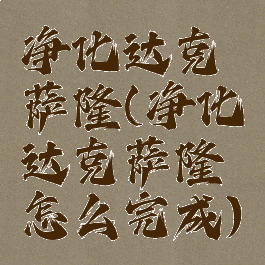 净化达克
萨隆(净化
达克萨隆
怎么完成)